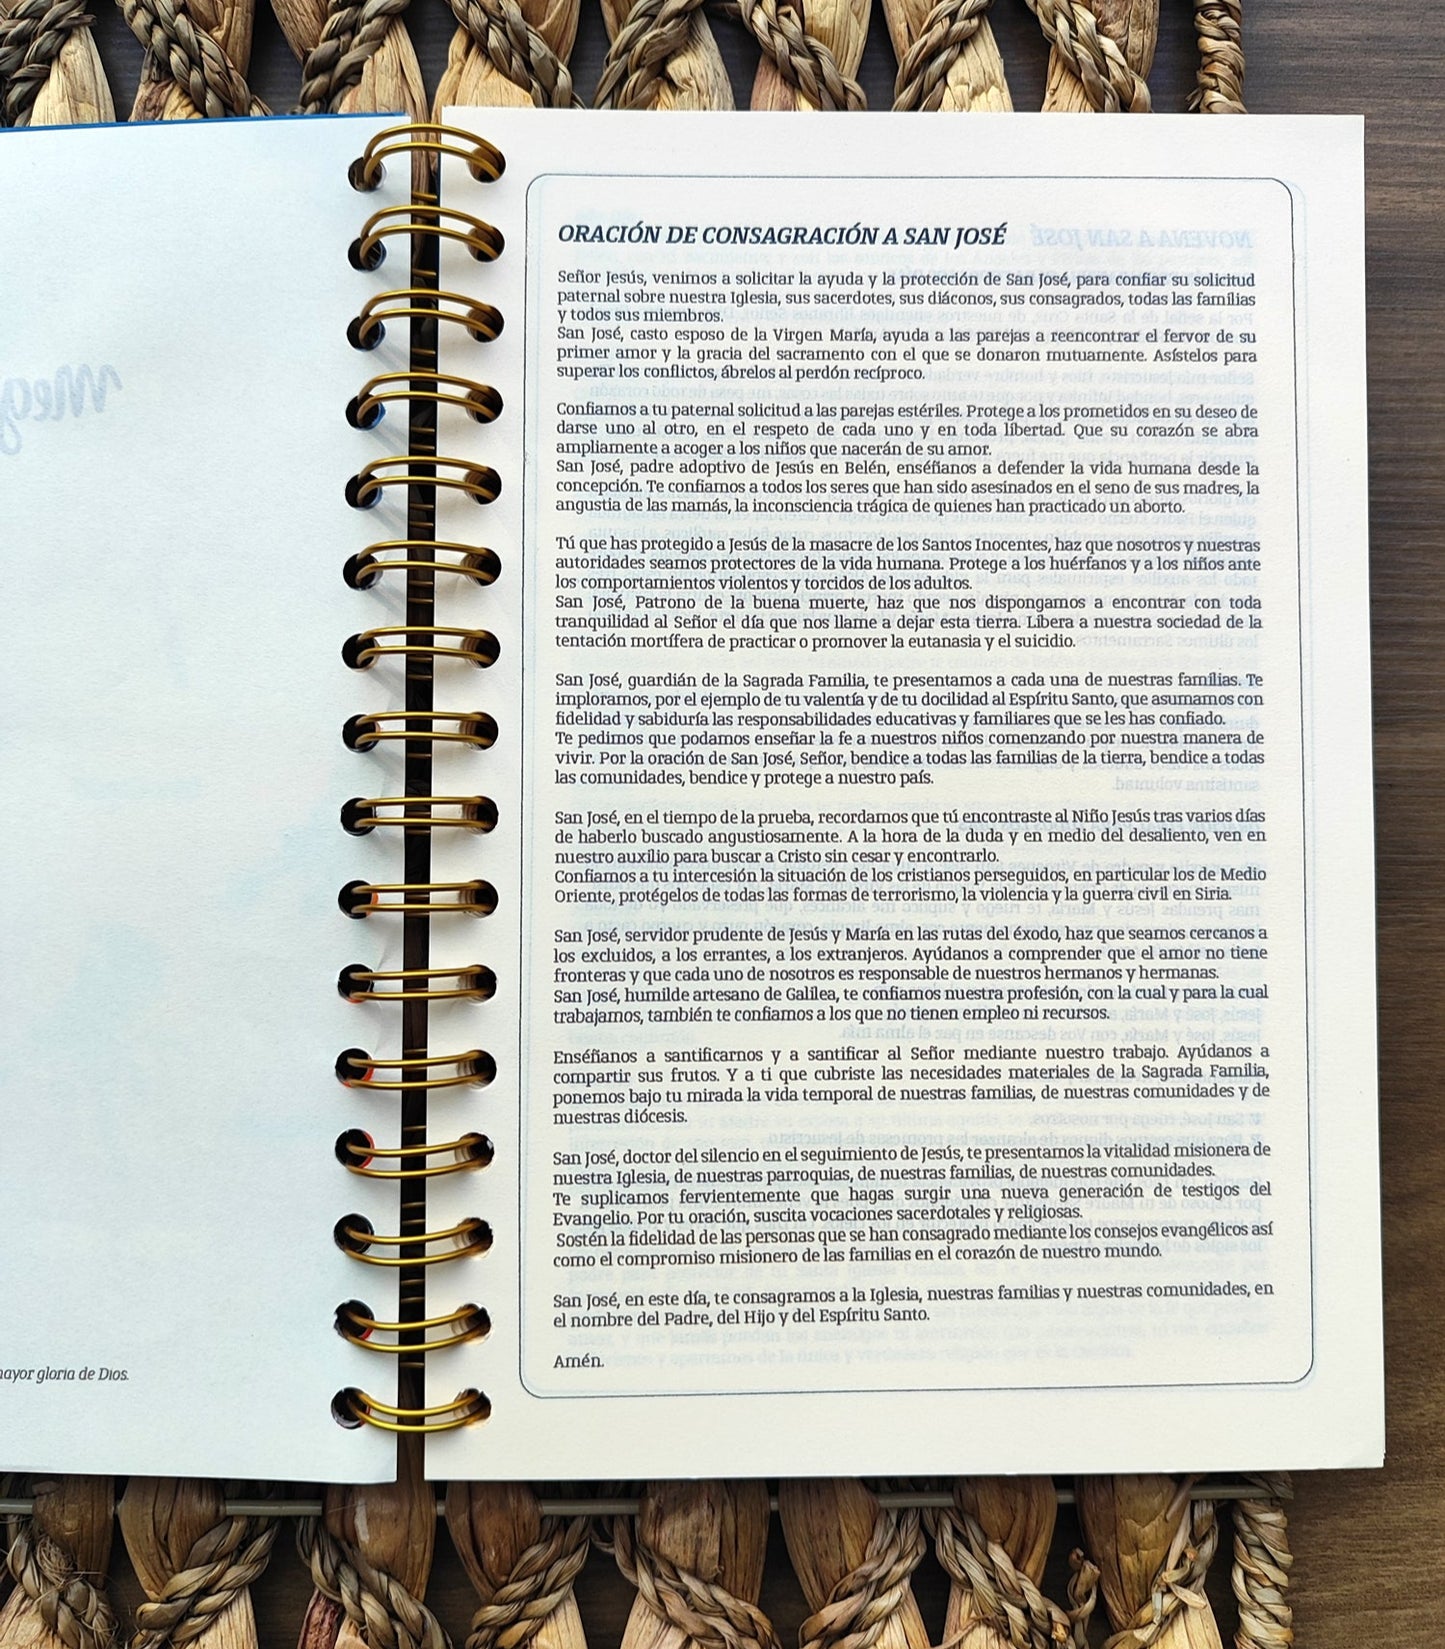 ORACIÓN DE CONSAGRACIÓN A SAN JOSÉ
Señor Jesús, venimos a solicitar la ayuda y la protección de San José, para confiar su solicitud
paternal sobre nuestra Iglesia, sus sacerdotes, sus diáconos, sus consagrados, todas las familias
y todos sus miembros.
San José, casto esposo de la Virgen María, ayuda a las parejas a reencontrar el fervor de su
primer amor y la gracia del sacramento con el que se donaron mutuamente. Asístelos para
superar los conflictos, ábrelos al perdón recíproco.
Confiamos a tu paternal solicitud a las parejas estériles. Protege a los prometidos en su deseo de
darse uno al otro, en el respeto de cada uno y en toda libertad. Que su corazón se abra
ampliamente a acoger a los niños que nacerán de su amor.
San José, padre adoptivo de Jesús en Belén, enséñanos a defender la vida humana desde la
concepción. Te confiamos a todos los seres que han sido asesinados en el seno de sus madres, la
angustia de las mamás, la inconsciencia trágica de quienes han practicado un aborto.
Tú que has protegido a Jesús de la masacre de los Santos Inocentes, haz que nosotros y nuestras
autoridades seamos protectores de la vida humana. Protege a los huérfanos y a los niños ante
los comportamientos violentos y torcidos de los adultos.
San José, Patrono de la buena muerte, haz que nos dispongamos a encontrar con toda
tranquilidad al Señor el día que nos llame a dejar esta tierra. Libera a nuestra sociedad de la
tentación mortífera de practicar o promover la eutanasia y el suicidio.
San José, guardián de la Sagrada Familia, te presentamos a cada una de nuestras familias. Te
imploramos, por el ejemplo de tu valentía y de tu docilidad al Espíritu Santo, que asumamos con
fidelidad y sabiduría las responsabilidades educativas y familiares que se les has confiado.
Te pedimos que podamos enseñar la fe a nuestros niños comenzando por nuestra manera de
vivir. Por la oración de San José, Señor, bendice a todas las familias de la tierra, bendice a todas
las comunidades, bendice y protege a nuestro país.
San José, en el tiempo de la prueba, recordamos que tú encontraste al Niño Jesús tras varios días
de haberlo buscado angustiosamente. A la hora de la duda y en medio del desaliento, ven en
nuestro auxilio para buscar a Cristo sin cesar y encontrarlo.
Confiamos a tu intercesión la situación de los cristianos perseguidos, en particular los de Medio
Oriente, protégelos de todas las formas de terrorismo, la violencia y la guerra civil en Siria.
San José, servidor prudente de Jesús y María en las rutas del éxodo, haz que seamos cercanos a
los excluidos, a los errantes, a los extranjeros. Ayúdanos a comprender que el amor no tiene
fronteras y que cada uno de nosotros es responsable de nuestros hermanos y hermanas.
San José, humilde artesano de Galilea, te confiamos nuestra profesión, con la cual y para la cual
trabajamos, también te confiamos a los que no tienen empleo ni recursos.
Enséñanos a santificarnos y a santificar al Señor mediante nuestro trabajo. Ayúdanos a
compartir sus frutos. Y a ti que cubriste las necesidades materiales de la Sagrada Familia,
ponemos bajo tu mirada la vida temporal de nuestras familias, de nuestras comunidades y de
nuestras diócesis.
San José, doctor del silencio en el seguimiento de Jesús, te presentamos la vitalidad misionera de
nuestra Iglesia, de nuestras parroquias, de nuestras familias, de nuestras comunidades.
Te suplicamos fervientemente que hagas surgir una nueva generación de testigos del
Evangelio. Por tu oración, suscita vocaciones sacerdotales y religiosas.
Sostén la fidelidad de las personas que se han consagrado mediante los consejos evangélicos así
como el compromiso misionero de las familias en el corazón de nuestro mundo.
San José, en este día, te consagramos a la Iglesia, nuestras familias y nuestras comunidades, en
el nombre del Padre, del Hijo y del Espíritu Santo.
Amén.
ayor gloria de Dios.